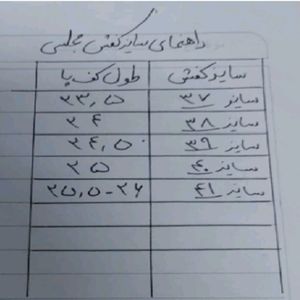 راهنمای سایز کفش مجلسی
سایز کفش طول کف پا
سایز ۳۷ ۲۳,۵
سایز ۳۸ ۲۴
سایز ۳۹ ۲۴,۵
سایز ۴۰ ۲۵
سایز ۴۱ ۲۵,۵-۲۶